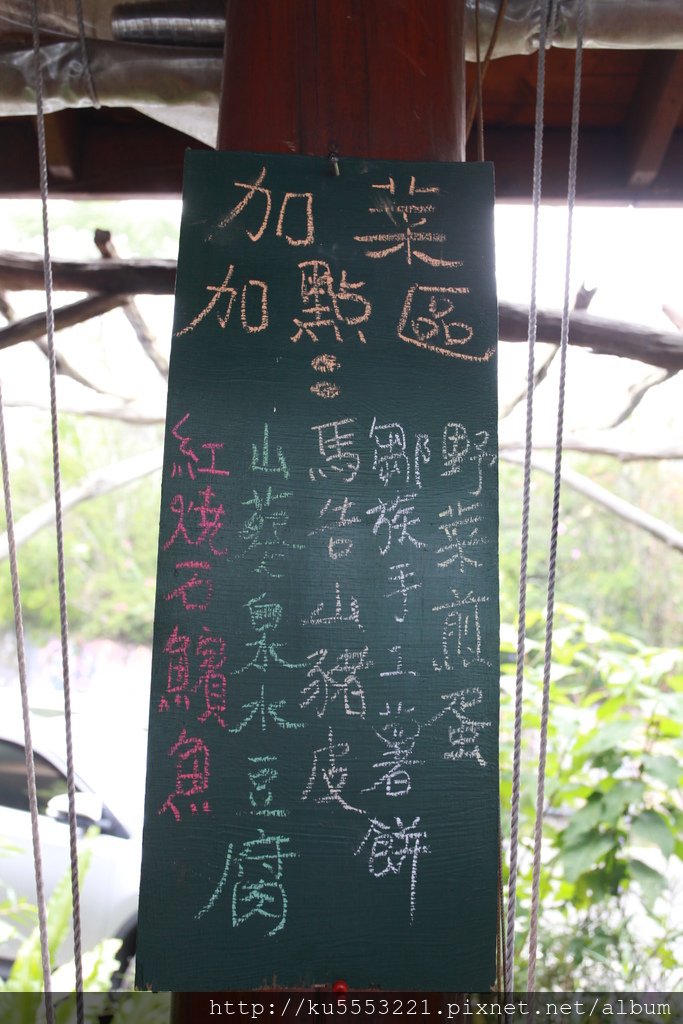 加菜
加點區:
野菜煎蛋
鄒族手工薯餅
馬告山豬皮
山葵泉水豆腐
紅燒石鱝魚
http://ku5553221.pixnet.net/album